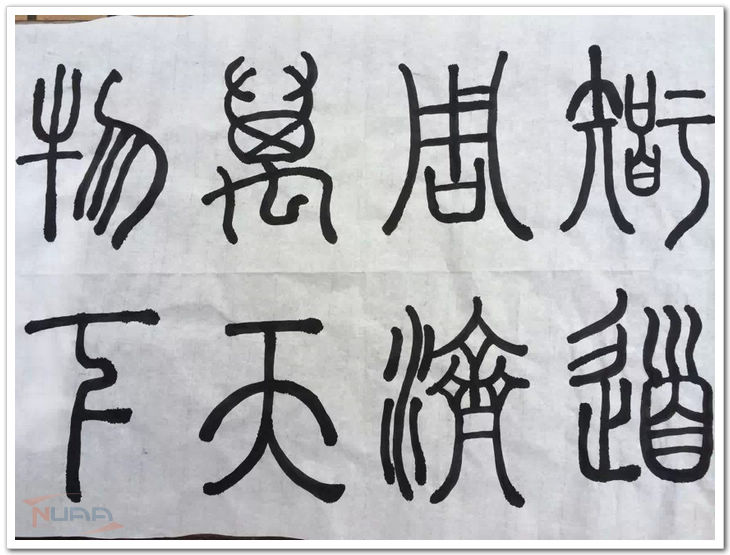 智周萬物
道濟天下
NUAA